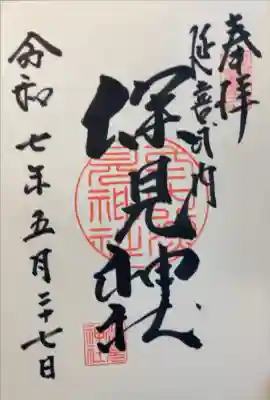 奉拝
延喜式内
深見神社
令和七年五月二十七日